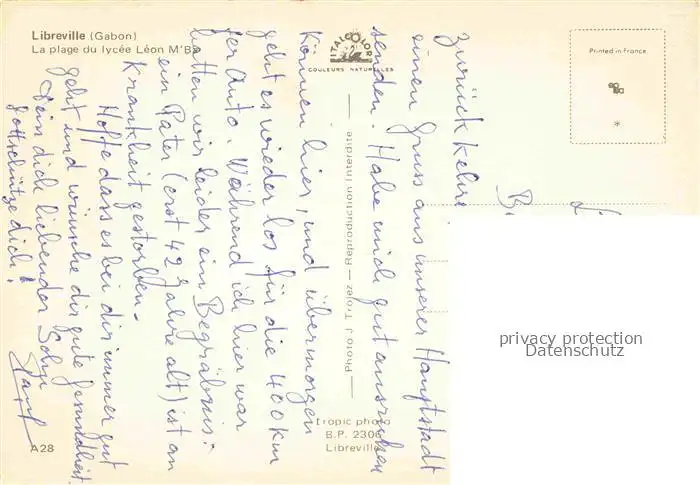 Libreville (Gabon)
La plage du lycée Léon M'Ba
ITALCOLOR
COULEURS NATURELLES
Printed in France
zurück kehre
einen Gruss aus unserer Hauptstadt
senden. Habe mich gut ausruhen
können hier, und übermorgen
geht es wieder los für die 400 km
per Auto. Während ich hier war
hatten wir leider ein Begräbnis:
ein Pater (erst 42 Jahre alt) ist an
Krankheit gestorben.
Hoffe dass es bei dir immer gut
geht und wünsche dir gute Gesundheit.
Dein dich liebender Sohn
Gott schütze dich!
Photo J. Trolez — Reproduction Interdite
tropic photo
B.P. 2306
Libreville
A28
privacy protection
Datenschutz